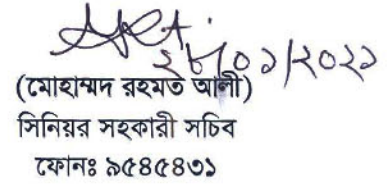 ২৮/০১/২০২১
(মোহাম্মদ রহমত আলী)
সিনিয়র সহকারী সচিব
ফোনঃ ৯৫৪৫৪৩১